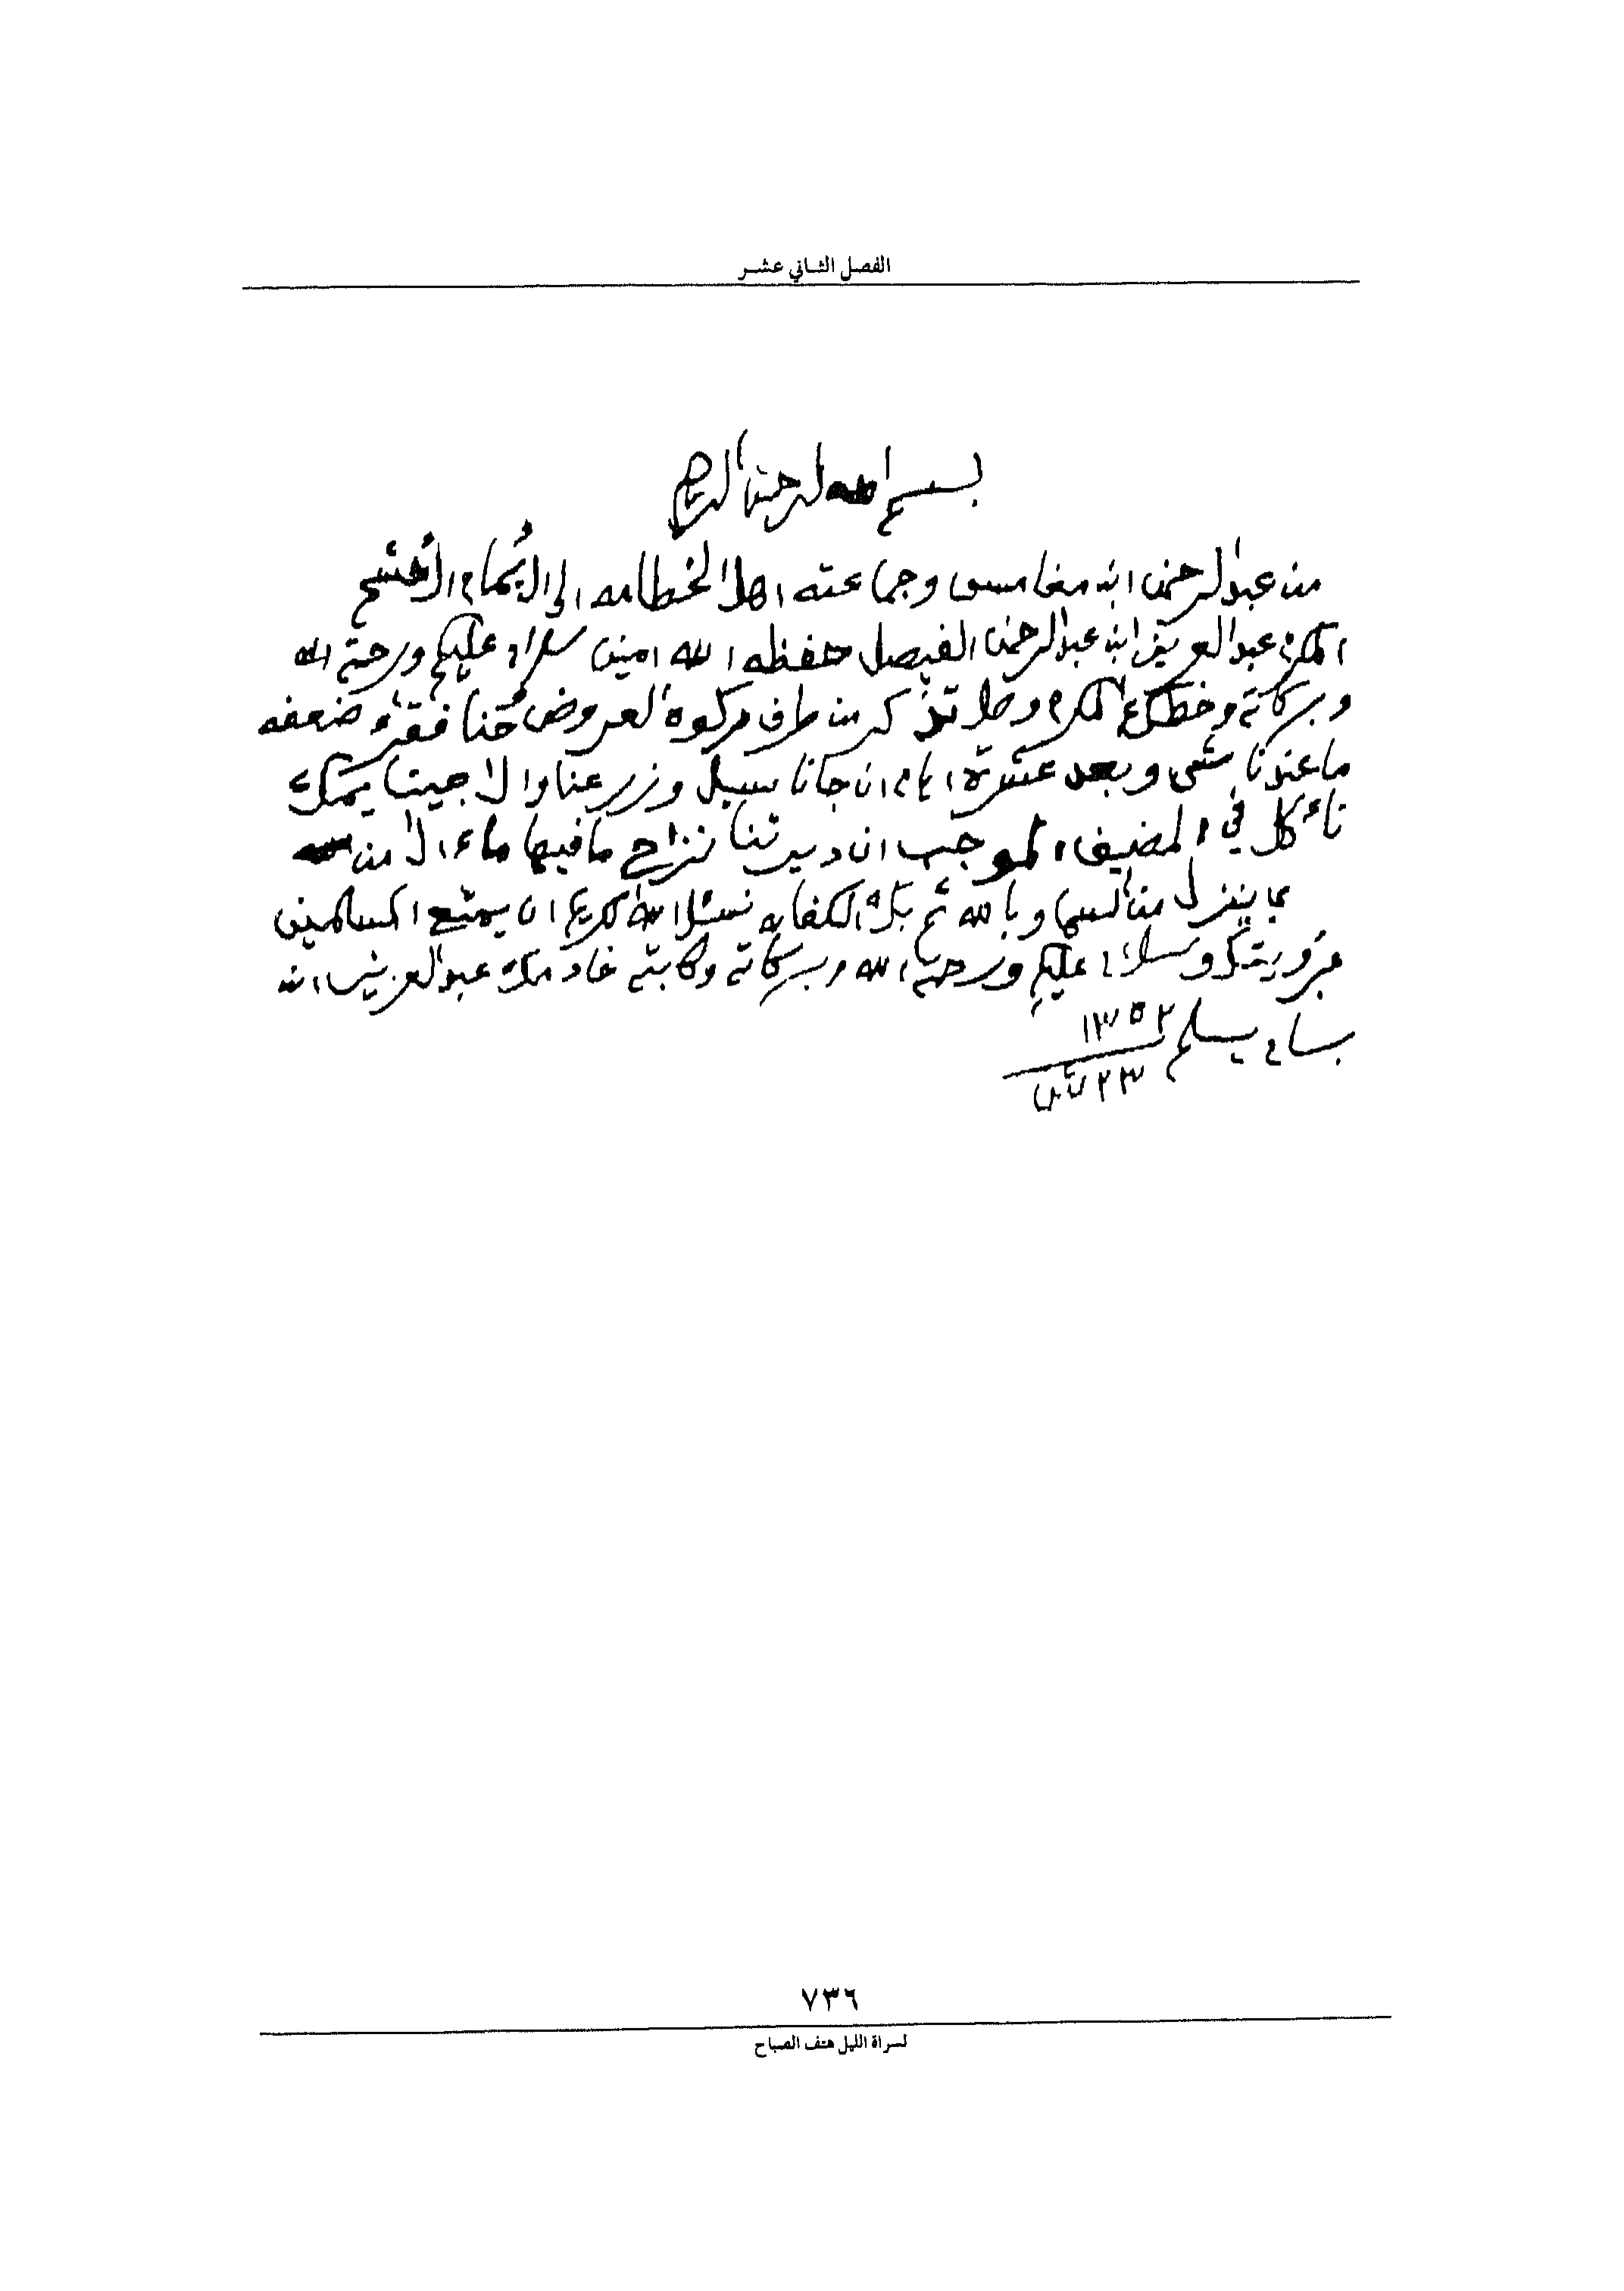 الفصل الثاني عشر
بسم الله الرحمن الرحيم
من عبدالرحمن ابن مغامس وجماعته اهل الخطامه الى الإمام الأفشم
المكرم عبدالعزيز ابن عبدالرحمن الفيصل حفظه الله امين سلام عليكم ورحمة الله
وبركاته وخطك المكرم وصل تذكر من طرف زكوة العروض حنا فقرء وضعفه
ما عندنا شي وبعد عشرة ايام ان جانا سيل وزرعنا والا جينا يمك
نأكل في المضيف الموجب ان ديرتنا نزاح ما فيها ماء الا من
ما ينزل من السما وبالله ثم بك الكفايه نسئل الله الكريم ان يمتع المسلمين
وسلام عليكم ورحمة الله وبركاته وكاتبه خادمك عبدالعزيز ابن
يسلم ١٣٥٢
٢٣
٧٣٦
لسراة الليل هتف الصباح